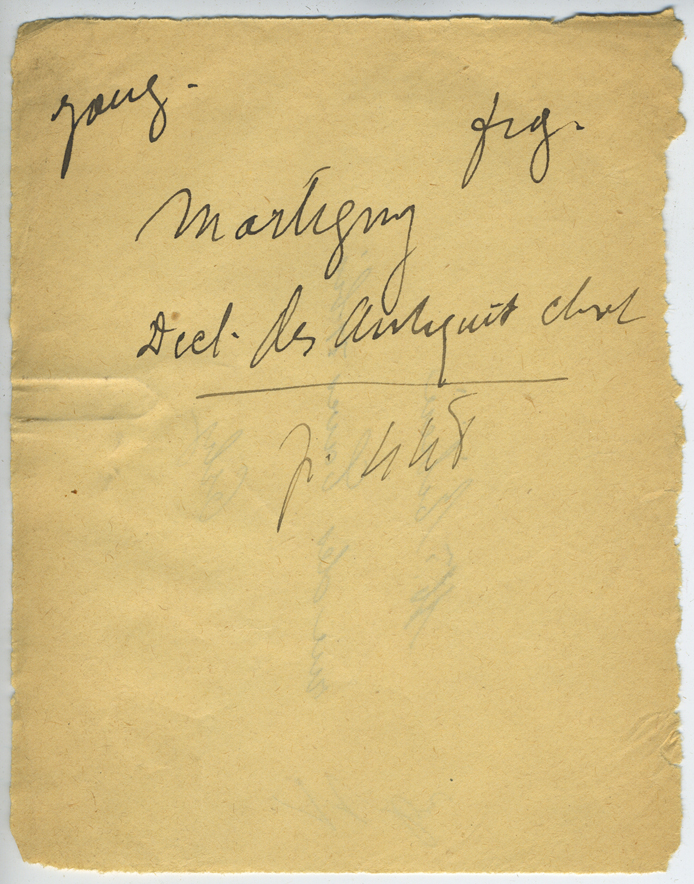 frg.
Martigny
Dict. des Antiquit chret
p. 448